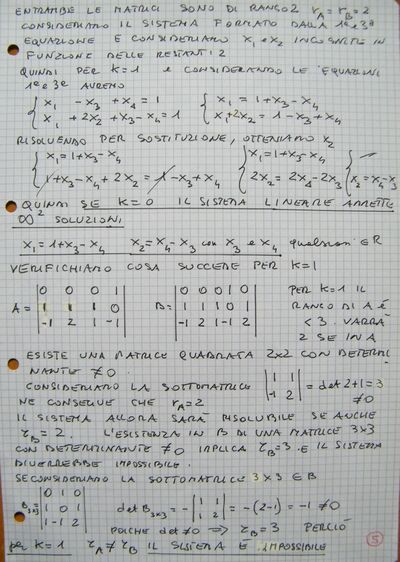 ENTRAMBE LE MATRICI SONO DI RANGO 2 r_A = r_B = 2
CONSIDERIAMO IL SISTEMA FORMATO DALLA 1ª e 3ª
EQUAZIONE E CONSIDERIAMO x1 e x2 INCOGNITE IN
FUNZIONE DELLE RESTANTI 2
QUINDI PER K=1 e CONSIDERANDO LE EQUAZIONI
1ª e 3ª AVREMO
{ x1 - x3 + x4 = 1 { x1 = 1+x3-x4
{ x1 + 2x2 + x3 - x4 = 1 { x1+2x2 = 1-x3+x4
RISOLVENDO PER SOSTITUZIONE, OTTENIAMO x2
{ x1 = 1+x3-x4 { x1 = 1+x3-x4 {
{ 1+x3-x4+2x2 = 1-x3+x4 { 2x2 = 2x4-2x3 { x2 = x4-x3
QUINDI SE K=0 IL SISTEMA LINEARE AMMETTE
∞² SOLUZIONI
x1 = 1+x3-x4 x2 = x4-x3 con x3 e x4 qualsiasi ∈ R
VERIFICHIAMO COSA SUCCEDE PER K=1
A = | 0 0 0 1 | B = | 0 0 0 1 0 | PER K=1 IL
| 1 1 1 0 | | 1 1 1 0 1 | RANGO DI A È
| -1 2 1 -1 | | -1 2 1 -1 2 | < 3. VARRÀ
2 SE IN A
ESISTE UNA MATRICE QUADRATA 2x2 CON DETERMI
NANTE ≠0.
CONSIDERIAMO LA SOTTOMATRICE | 1 1 | = det 2+1 = 3
NE CONSEGUE CHE r_A=2 | -1 2 | ≠0
IL SISTEMA ALLORA SARÀ RISOLUBILE SE ANCHE
r_B = 2. L'ESISTENZA IN B DI UNA MATRICE 3X3
CON DETERMINANTE ≠0 IMPLICA r_B=3 E IL SISTEMA
DIVERREBBE IMPOSSIBILE.
SE CONSIDERIAMO LA SOTTOMATRICE 3x3 ∈ B
B3x3 = | 0 1 0 |
| 1 0 1 | det B3x3 = - | 1 1 | = -(2-1) = -1 ≠0
| 1 -1 2 | | 1 2 |
POICHÉ det ≠0 ⇒ r_B=3 PERCIÒ
per K=1 r_A ≠ r_B IL SISTEMA È IMPOSSIBILE
5